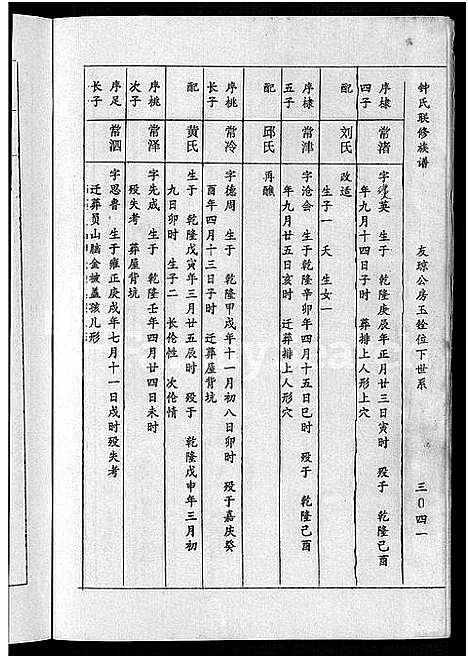 钟氏联修族谱
友琼公房玉铨位下世系
三〇四一
序棣
四子
常渚
字 英 生于 乾隆庚辰年正月廿三日寅时 殁于 乾隆己酉
年九月十四日子时 葬排上人形上穴
配
刘氏
改适
生子一 夭 生女一
序棣
五子
常津
字沧会 生于乾隆辛卯年四月十五日巳时 殁于 乾隆己酉
年九月廿五日亥时 迁葬排上人形穴
配
邱氏
再醮
序桃
长子
常冷
字德周 生于 乾隆甲戌年十一月初八日卯时 殁于嘉庆癸
酉年四月十三日子时 迁葬屋背坑
配
黄氏
生于 乾隆戊寅年三月廿五辰时 殁于 乾隆戊申年三月初
九日卯时 生子二 长伦性 次伦情
序桃
次子
常泽
字先成 生于 乾隆壬年四月廿四日未时
殁失考 葬屋背坑
序足
长子
常泗
字思鲁 生于雍正庚戌年七月十一日戌时殁失考
迁葬员山脑金被盖孩儿形